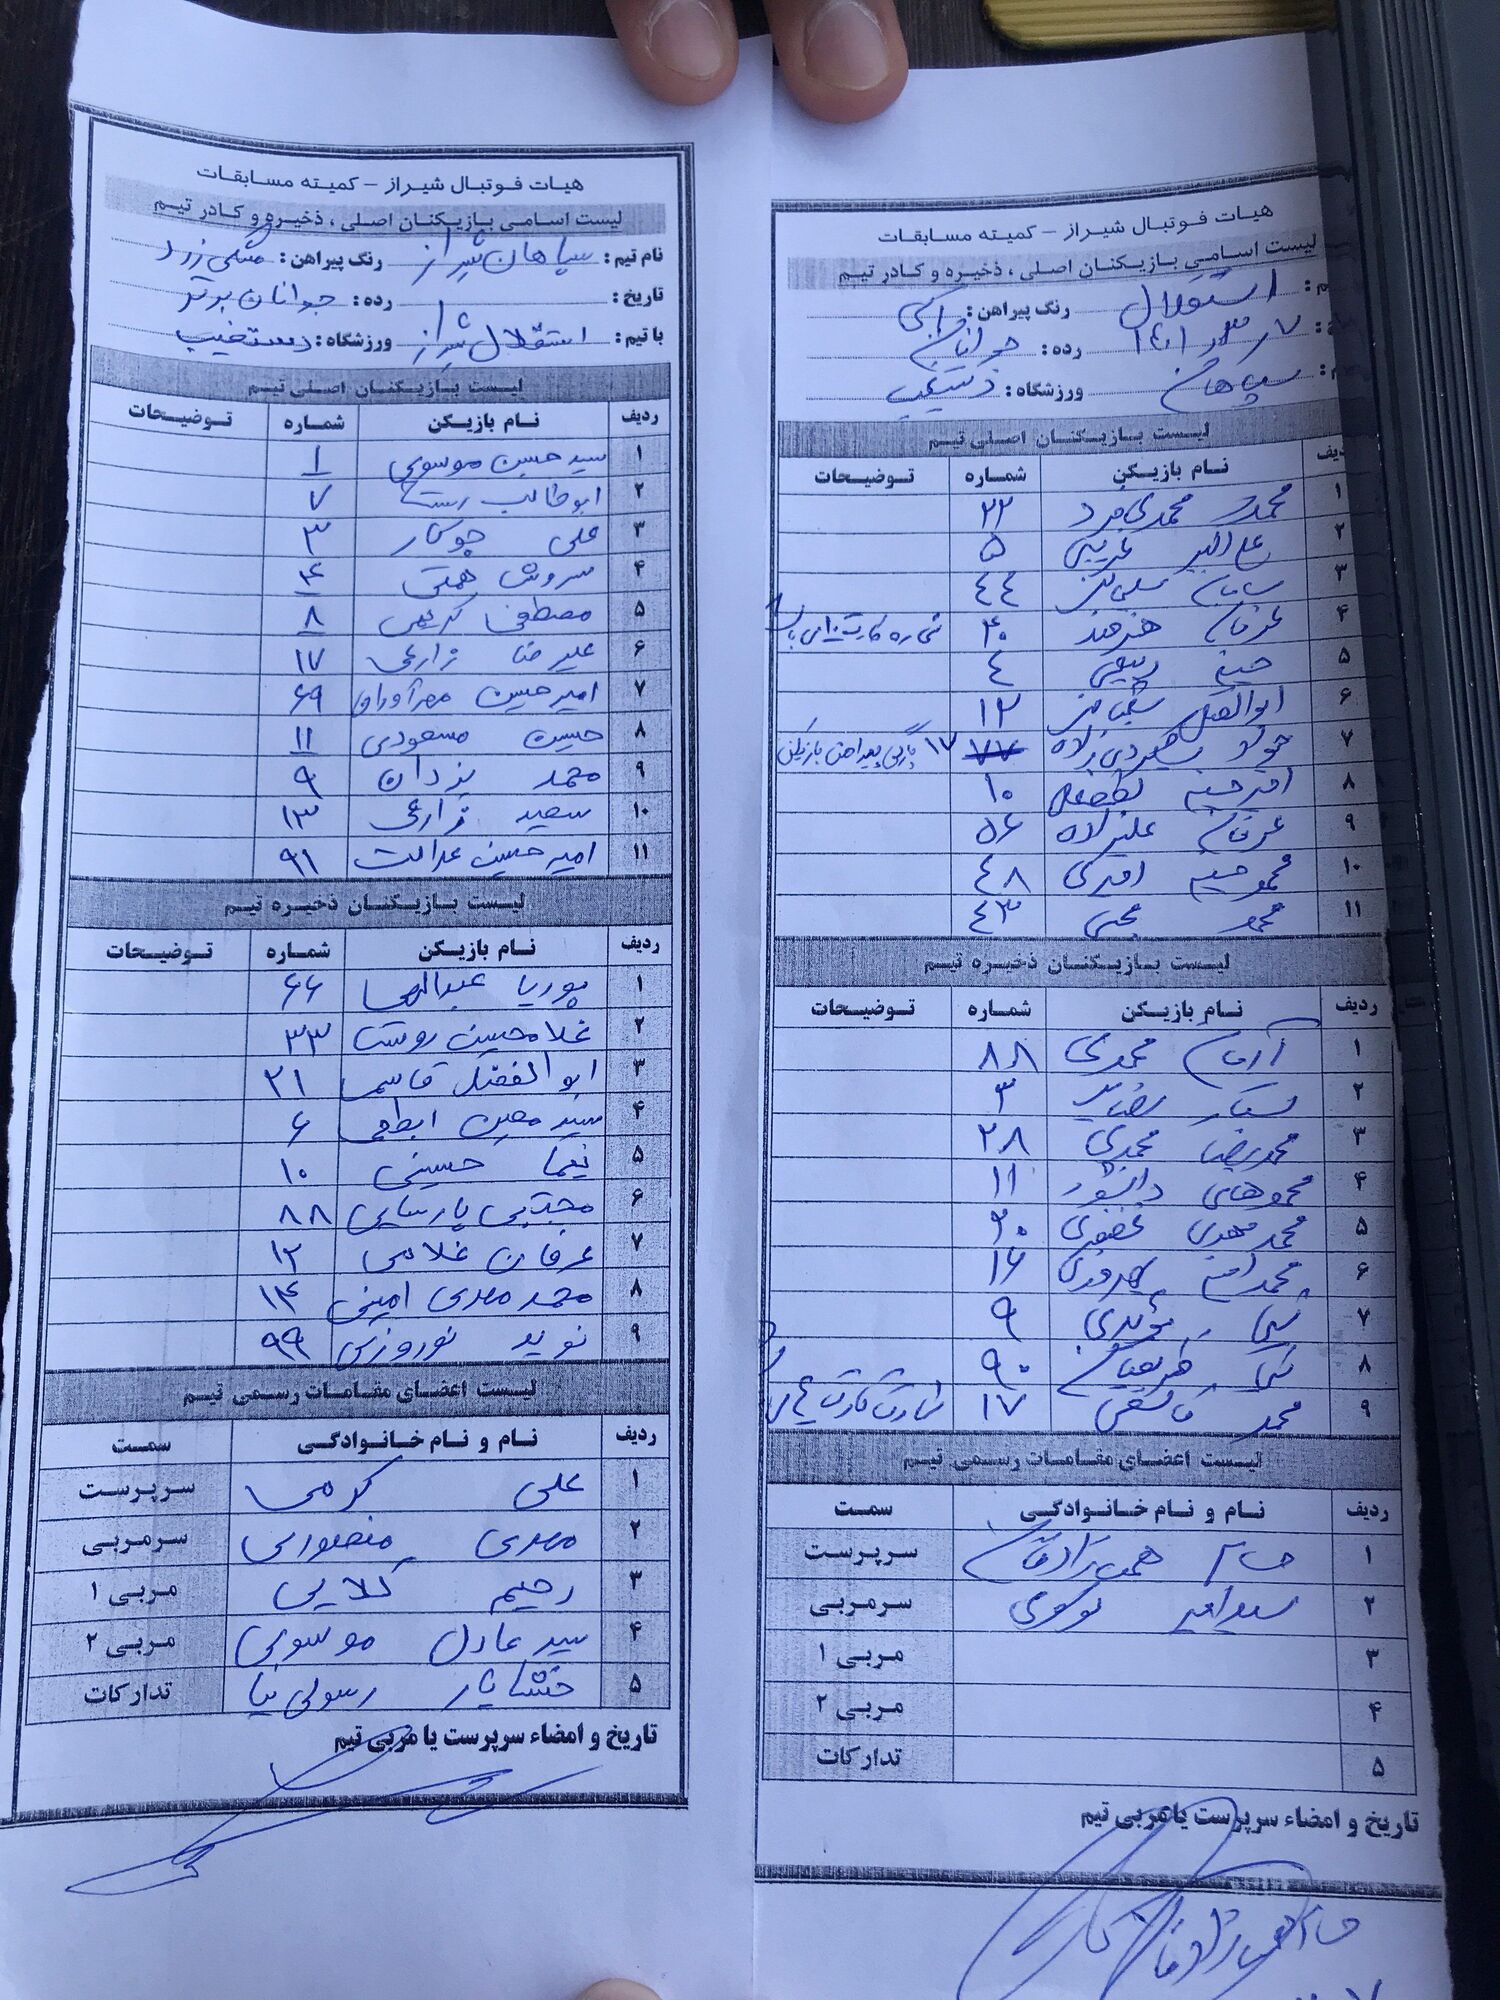 هیات فوتبال شیراز - کمیته مسابقات
لیست اسامی بازیکنان اصلی ، ذخیره و کادر تیم
نام تیم : سپاهان شیراز رنگ پیراهن : مشکی زرد
تاریخ : رده : جوانان برتر
با تیم : استقلال شیراز ورزشگاه : دستغیب
لیست بازیکنان اصلی تیم
ردیف نام بازیکن شماره توضیحات
۱ سید حسین موسوی ۱
۲ ابوطالب ۷
۳ علی جوکار ۳
۴ سروش همتی ۴
۵ مصطفی کریمی ۸
۶ علیرضا زارعی ۱۷
۷ امیرحسین مهرآوران ۶۹
۸ حسین مسعودی ۱۱
۹ محمد یزدان ۹
۱۰ سعید زارعی ۱۳
۱۱ امیرحسین عدالت ۹۱
لیست بازیکنان ذخیره تیم
ردیف نام بازیکن شماره توضیحات
۱ پوریا عبدالهی ۶۶
۲ غلامحسین روستا ۳۳
۳ ابوالفضل قاسمی ۲۱
۴ سید معین ابطحی ۶
۵ نیما حسینی ۱۰
۶ مجتبی پارسایی ۸۸
۷ عرفان غلامی ۱۲
۸ محمد مهدی امینی ۱۴
۹ نوید نوروزی ۹۹
لیست اعضای مقامات رسمی تیم
ردیف نام و نام خانوادگی سمت
۱ علی کرمی سرپرست
۲ مهدی منصوری سرمربی
۳ رحیم کلایی مربی ۱
۴ سید عادل موسوی مربی ۲
۵ خشایار رسولی نیا تدارکات
تاریخ و امضاء سرپرست یا مربی تیم
هیات فوتبال شیراز - کمیته مسابقات
لیست اسامی بازیکنان اصلی ، ذخیره و کادر تیم
م : استقلال رنگ پیراهن : آبی
رده : جوانان
سپاهان ورزشگاه : دستغیب
لیست بازیکنان اصلی تیم
ردیف نام بازیکن شماره توضیحات
۱ محمد محمدی فرد ۲۲
۲ علی اکبر غریبی ۵
۳ سامان ۴۴
۴ عرفان هنرمند ۴۰
۵ حسین ربیعی ۴
۶ ابوالفضل ۱۲
۷ جواد ۷۷ ۱۷ پارگی پیراهن بازیکن
۸ امیرحسین ۱۰
۹ عرفان علیزاده ۵۶
۱۰ محمدحسین امیری ۴۸
۱۱ محمد محبی ۴۳
لیست بازیکنان ذخیره تیم
ردیف نام بازیکن شماره توضیحات
۱ آرمان محمدی ۸۸
۲ ۳
۳ محمدرضا محمدی ۲۸
۴ محمدهادی دانشور ۱۱
۵ محمد مهدی غضنفری ۳۰
۶ محمد امین ۱۶
۷ ۹
۸ ۹۰
۹ محمد قاسمی ۱۷
لیست اعضای مقامات رسمی تیم
ردیف نام و نام خانوادگی سمت
۱ سرپرست
۲ سید امیر موسوی سرمربی
۳ مربی ۱
۴ مربی ۲
۵ تدارکات
تاریخ و امضاء سرپرست یا مربی تیم